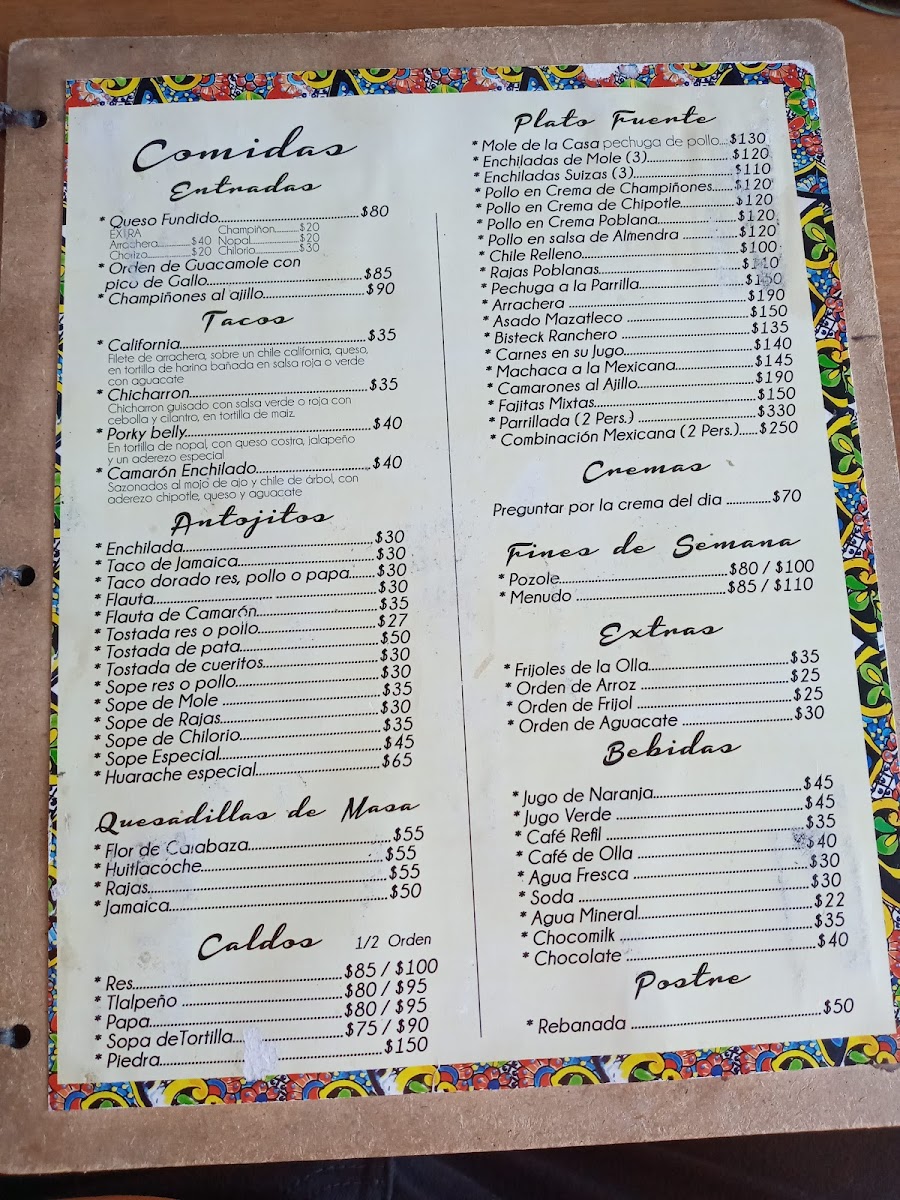 Comidas
Entradas
* Queso Fundido.......$80
EXTRA
Arrachera.......$40 Champiñon.......$20
Chorizo.......$20 Nopal.......$20
Chilorio.......$30
* Orden de Guacamole con
pico de Gallo.......$85
* Champiñones al ajillo.......$90
Tacos
* California.......$35
Filete de arrachera, sobre un chile california, queso,
en tortilla de harina bañada en salsa roja o verde
con aguacate
* Chicharron.......$35
Chicharron guisado con salsa verde o roja con
cebolla y cilantro, en tortilla de maiz.
* Porky belly.......$40
En tortilla de nopal, con queso costra, jalapeño
y un aderezo especial
* Camarón Enchilado.......$40
Sazonados al mojo de ajo y chile de árbol, con
aderezo chipotle, queso y aguacate
Antojitos
* Enchilada.......$30
* Taco de Jamaica.......$30
* Taco dorado res, pollo o papa.......$30
* Flauta.......$30
* Flauta de Camarón.......$35
* Tostada res o pollo.......$27
* Tostada de pata.......$50
* Tostada de cueritos.......$30
* Sope res o pollo.......$30
* Sope de Mole .......$35
* Sope de Rajas.......$30
* Sope de Chilorio.......$35
* Sope Especial.......$45
* Huarache especial.......$65
Quesadillas de Masa
* Flor de Calabaza.......$55
* Huitlacoche.......$55
* Rajas.......$55
* Jamaica.......$50
Caldos 1/2 Orden
* Res.......$85 / $100
* Tlalpeño .......$80 / $95
* Papa.......$80 / $95
* Sopa deTortilla.......$75 / $90
* Piedra.......$150
Plato Fuerte
* Mole de la Casa pechuga de pollo...$130
* Enchiladas de Mole (3).......$120
* Enchiladas Suizas (3).......$110
* Pollo en Crema de Champiñones......$120
* Pollo en Crema de Chipotle.......$120
* Pollo en Crema Poblana.......$120
* Pollo en salsa de Almendra .......$120
* Chile Relleno.......$100
* Rajas Poblanas.......
* Pechuga a la Parrilla.......
* Arrachera .......$190
* Asado Mazatleco .......$150
* Bisteck Ranchero .......$135
* Carnes en su Jugo.......$140
* Machaca a la Mexicana.......$145
* Camarones al Ajillo.......$190
* Fajitas Mixtas.......$150
* Parrillada (2 Pers.) .......$330
* Combinación Mexicana (2 Pers.).....$250
Cremas
Preguntar por la crema del dia .......$70
Fines de Semana
* Pozole.......$80 / $100
* Menudo .......$85 / $110
Extras
* Frijoles de la Olla.......$35
* Orden de Arroz .......$25
* Orden de Frijol .......$25
* Orden de Aguacate .......$30
Bebidas
* Jugo de Naranja.......$45
* Jugo Verde .......$45
* Café Refil .......$35
* Café de Olla .......$40
* Agua Fresca .......$30
* Soda .......$30
* Agua Mineral.......$22
* Chocomilk .......$35
* Chocolate .......$40
Postre
* Rebanada .......$50